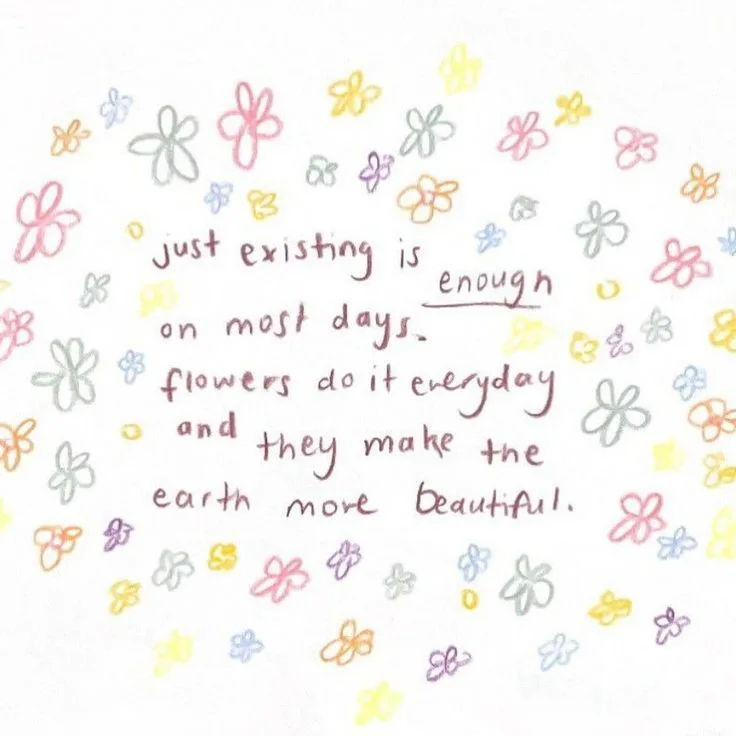 just existing is enough
on most days.
flowers do it everyday
and they make the
earth more beautiful.